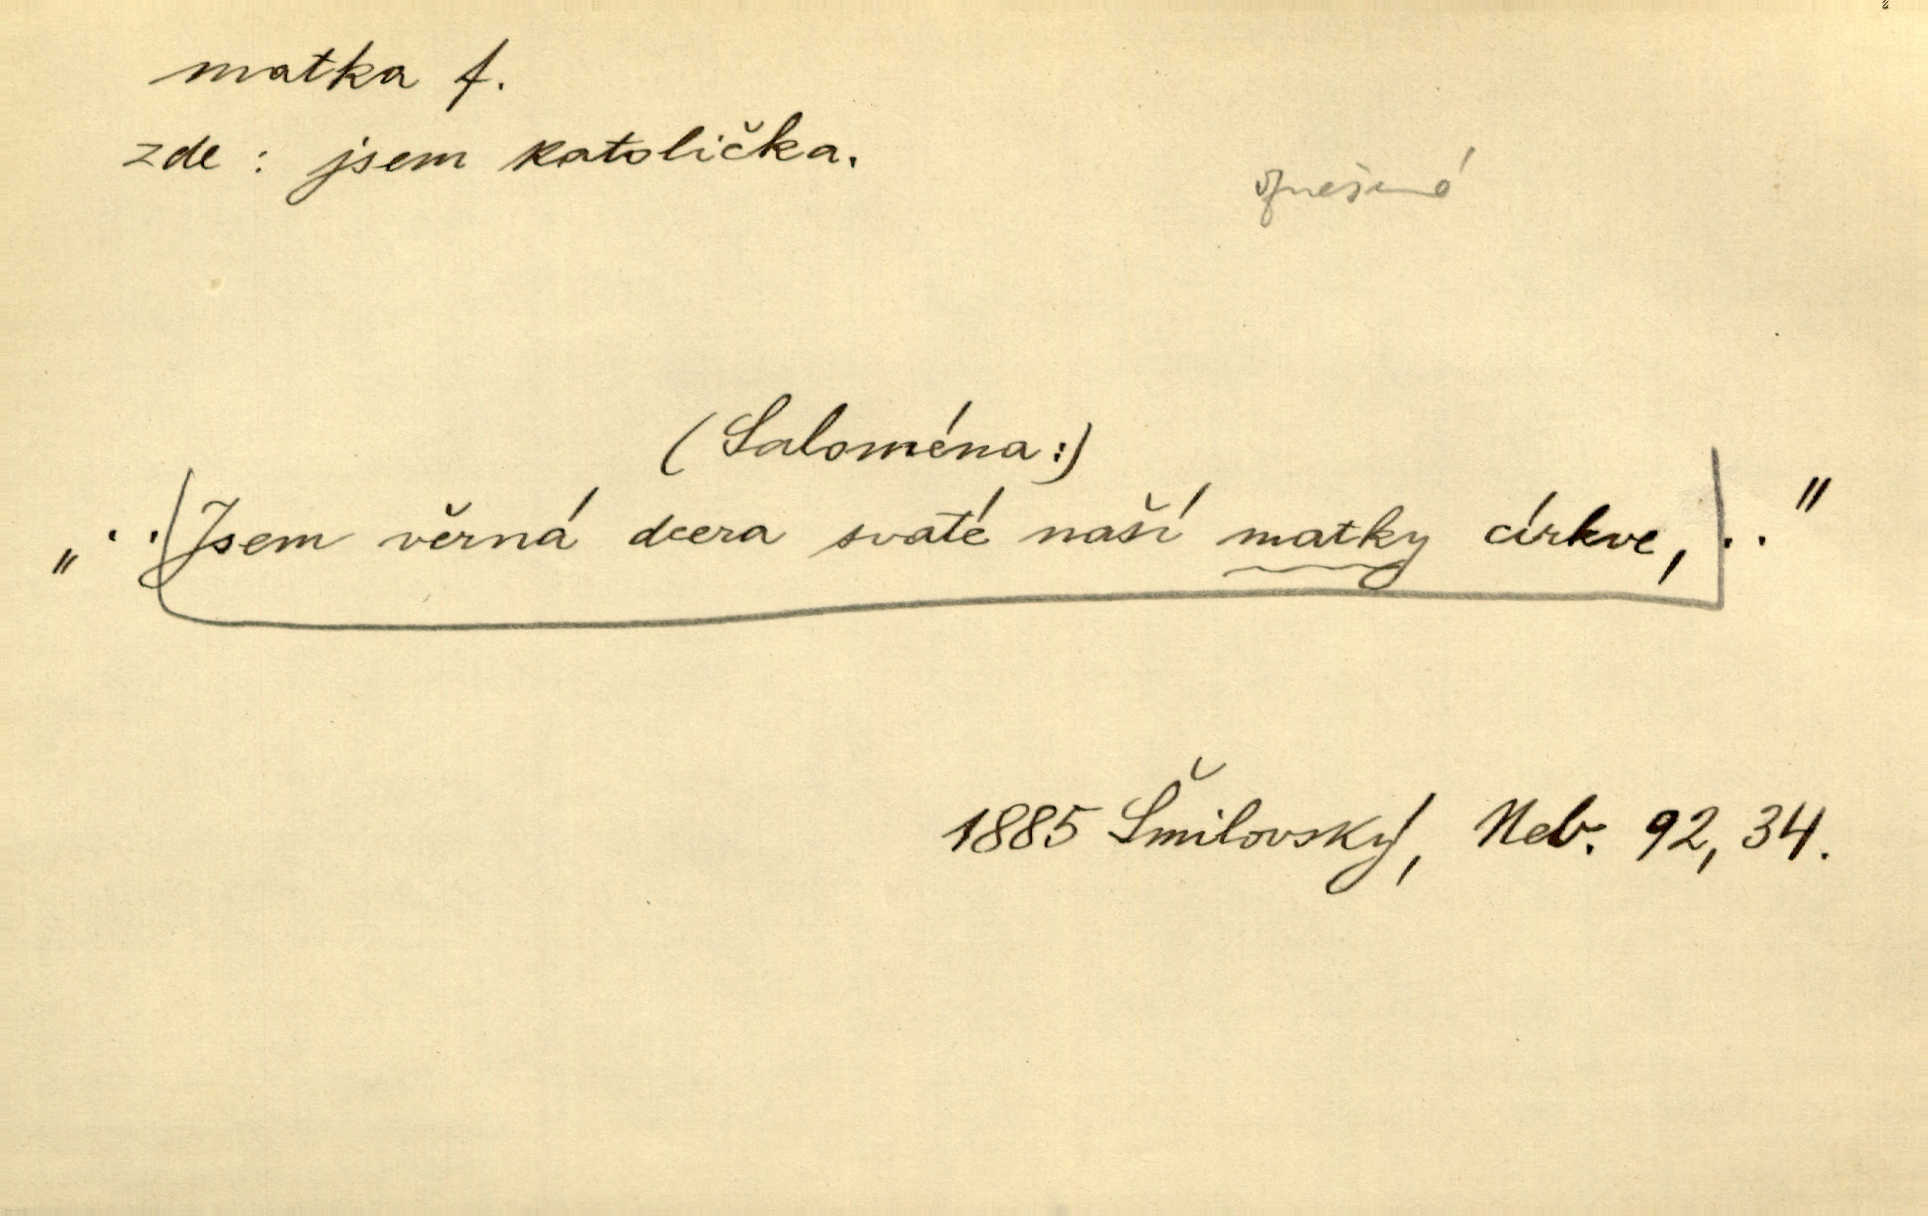 matka f.
zde : jsem katolička.
(Saloména:)
„ . . Jsem věrná dcera svaté naší matky církve, . . "
1885 Šmilovský, Neb. 92, 34.